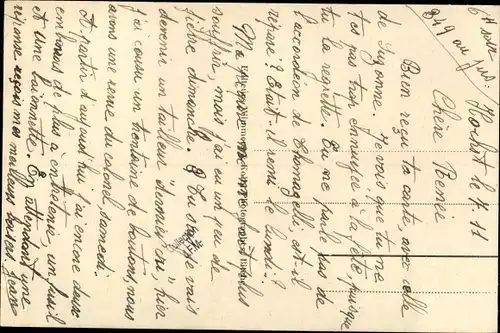 6e
849 au jus.
Hochst le 7.11
Chère Renée
Bien reçu ta carte, avec celle
de Suzanne. Je vois que tu ne
t'es pas trop ennuyée à la fête, puisque
tu la regrette. Tu ne parle pas de
l'accordéon de est-il
réparé? Etait-il remi le lundi?
Ma plus
souffrir, mais j'ai eu un peu de
fièvre dimanche. Et tu sais je vais
devenir un tailleur "dernier cri" hier
j'ai cousu un trentaine de boutons, nous
avons une revue du colonel, samedi.
A partir d'aujourd'hui j'ai encore deux
embusés de plus à entretenir, un fusil
et une baïonnette. En attendant une
réponse reçois mes meilleurs baisers. Jean